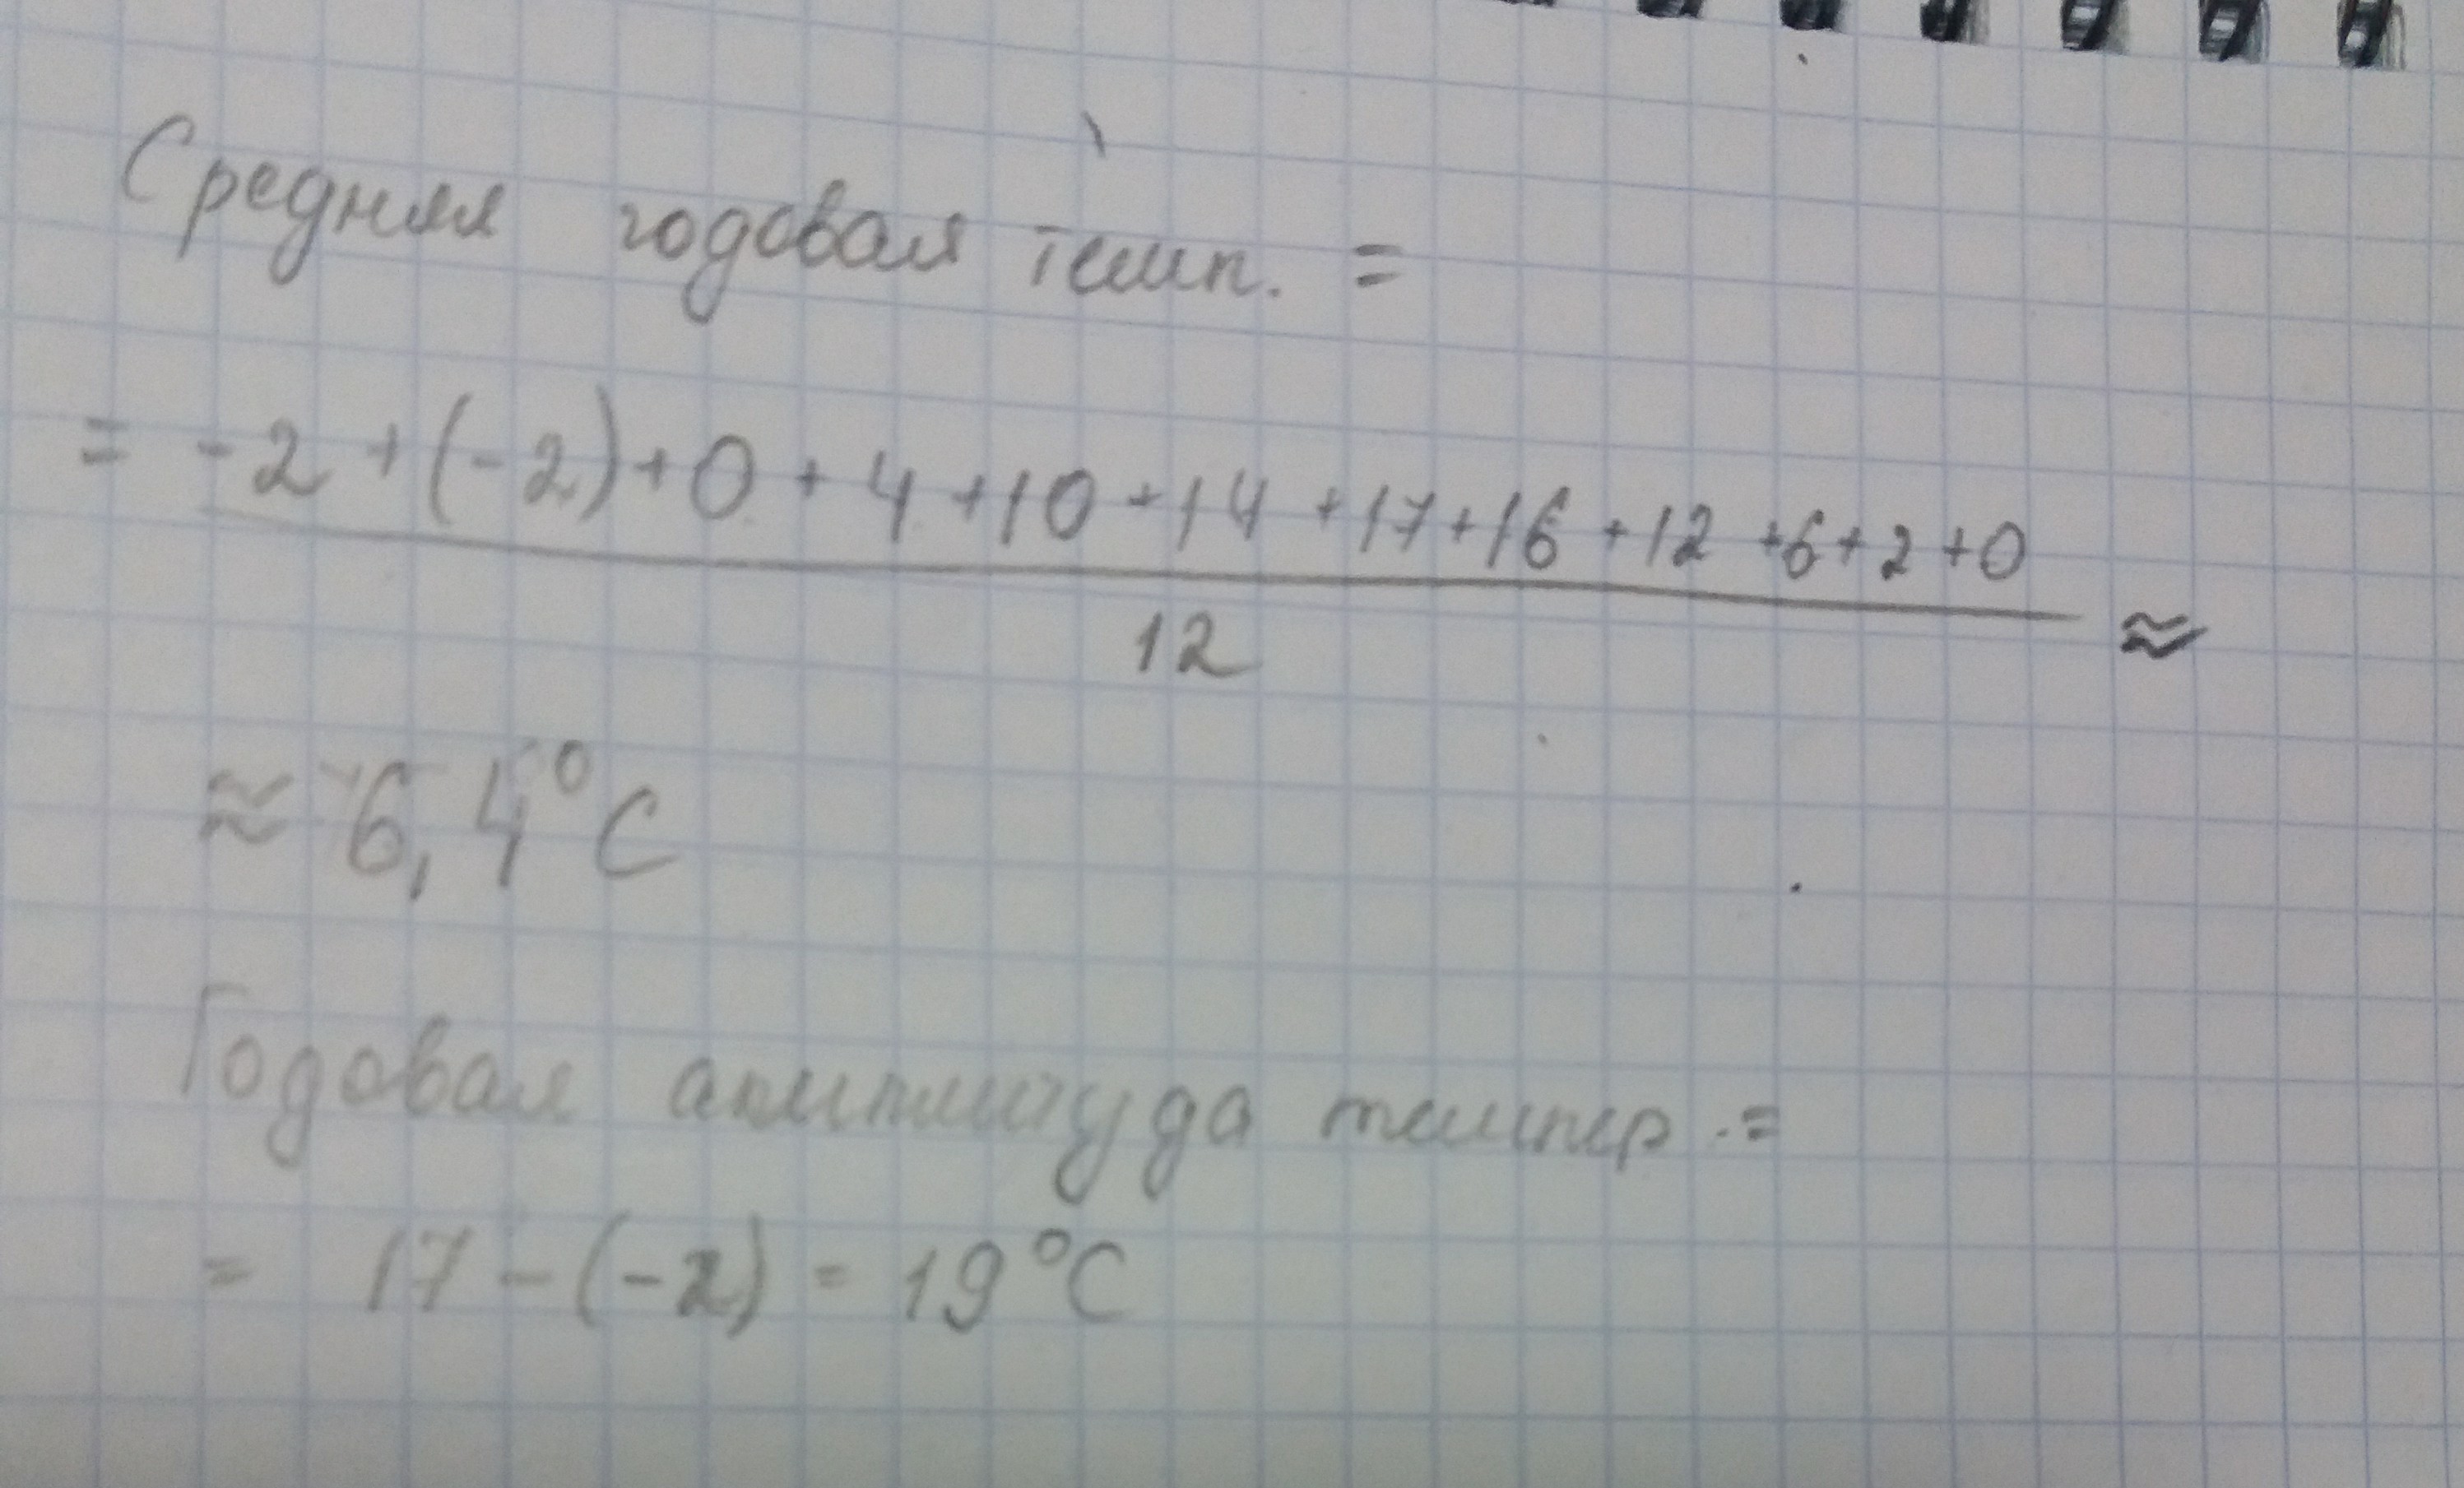 Средняя годовая темп. =
= -2 + (-2) + 0 + 4 + 10 + 14 + 17 + 16 + 12 + 6 + 2 + 0 ≈
12
≈ 6,4°C
Годовая амплитуда темпер. =
= 17 - (-2) = 19°C